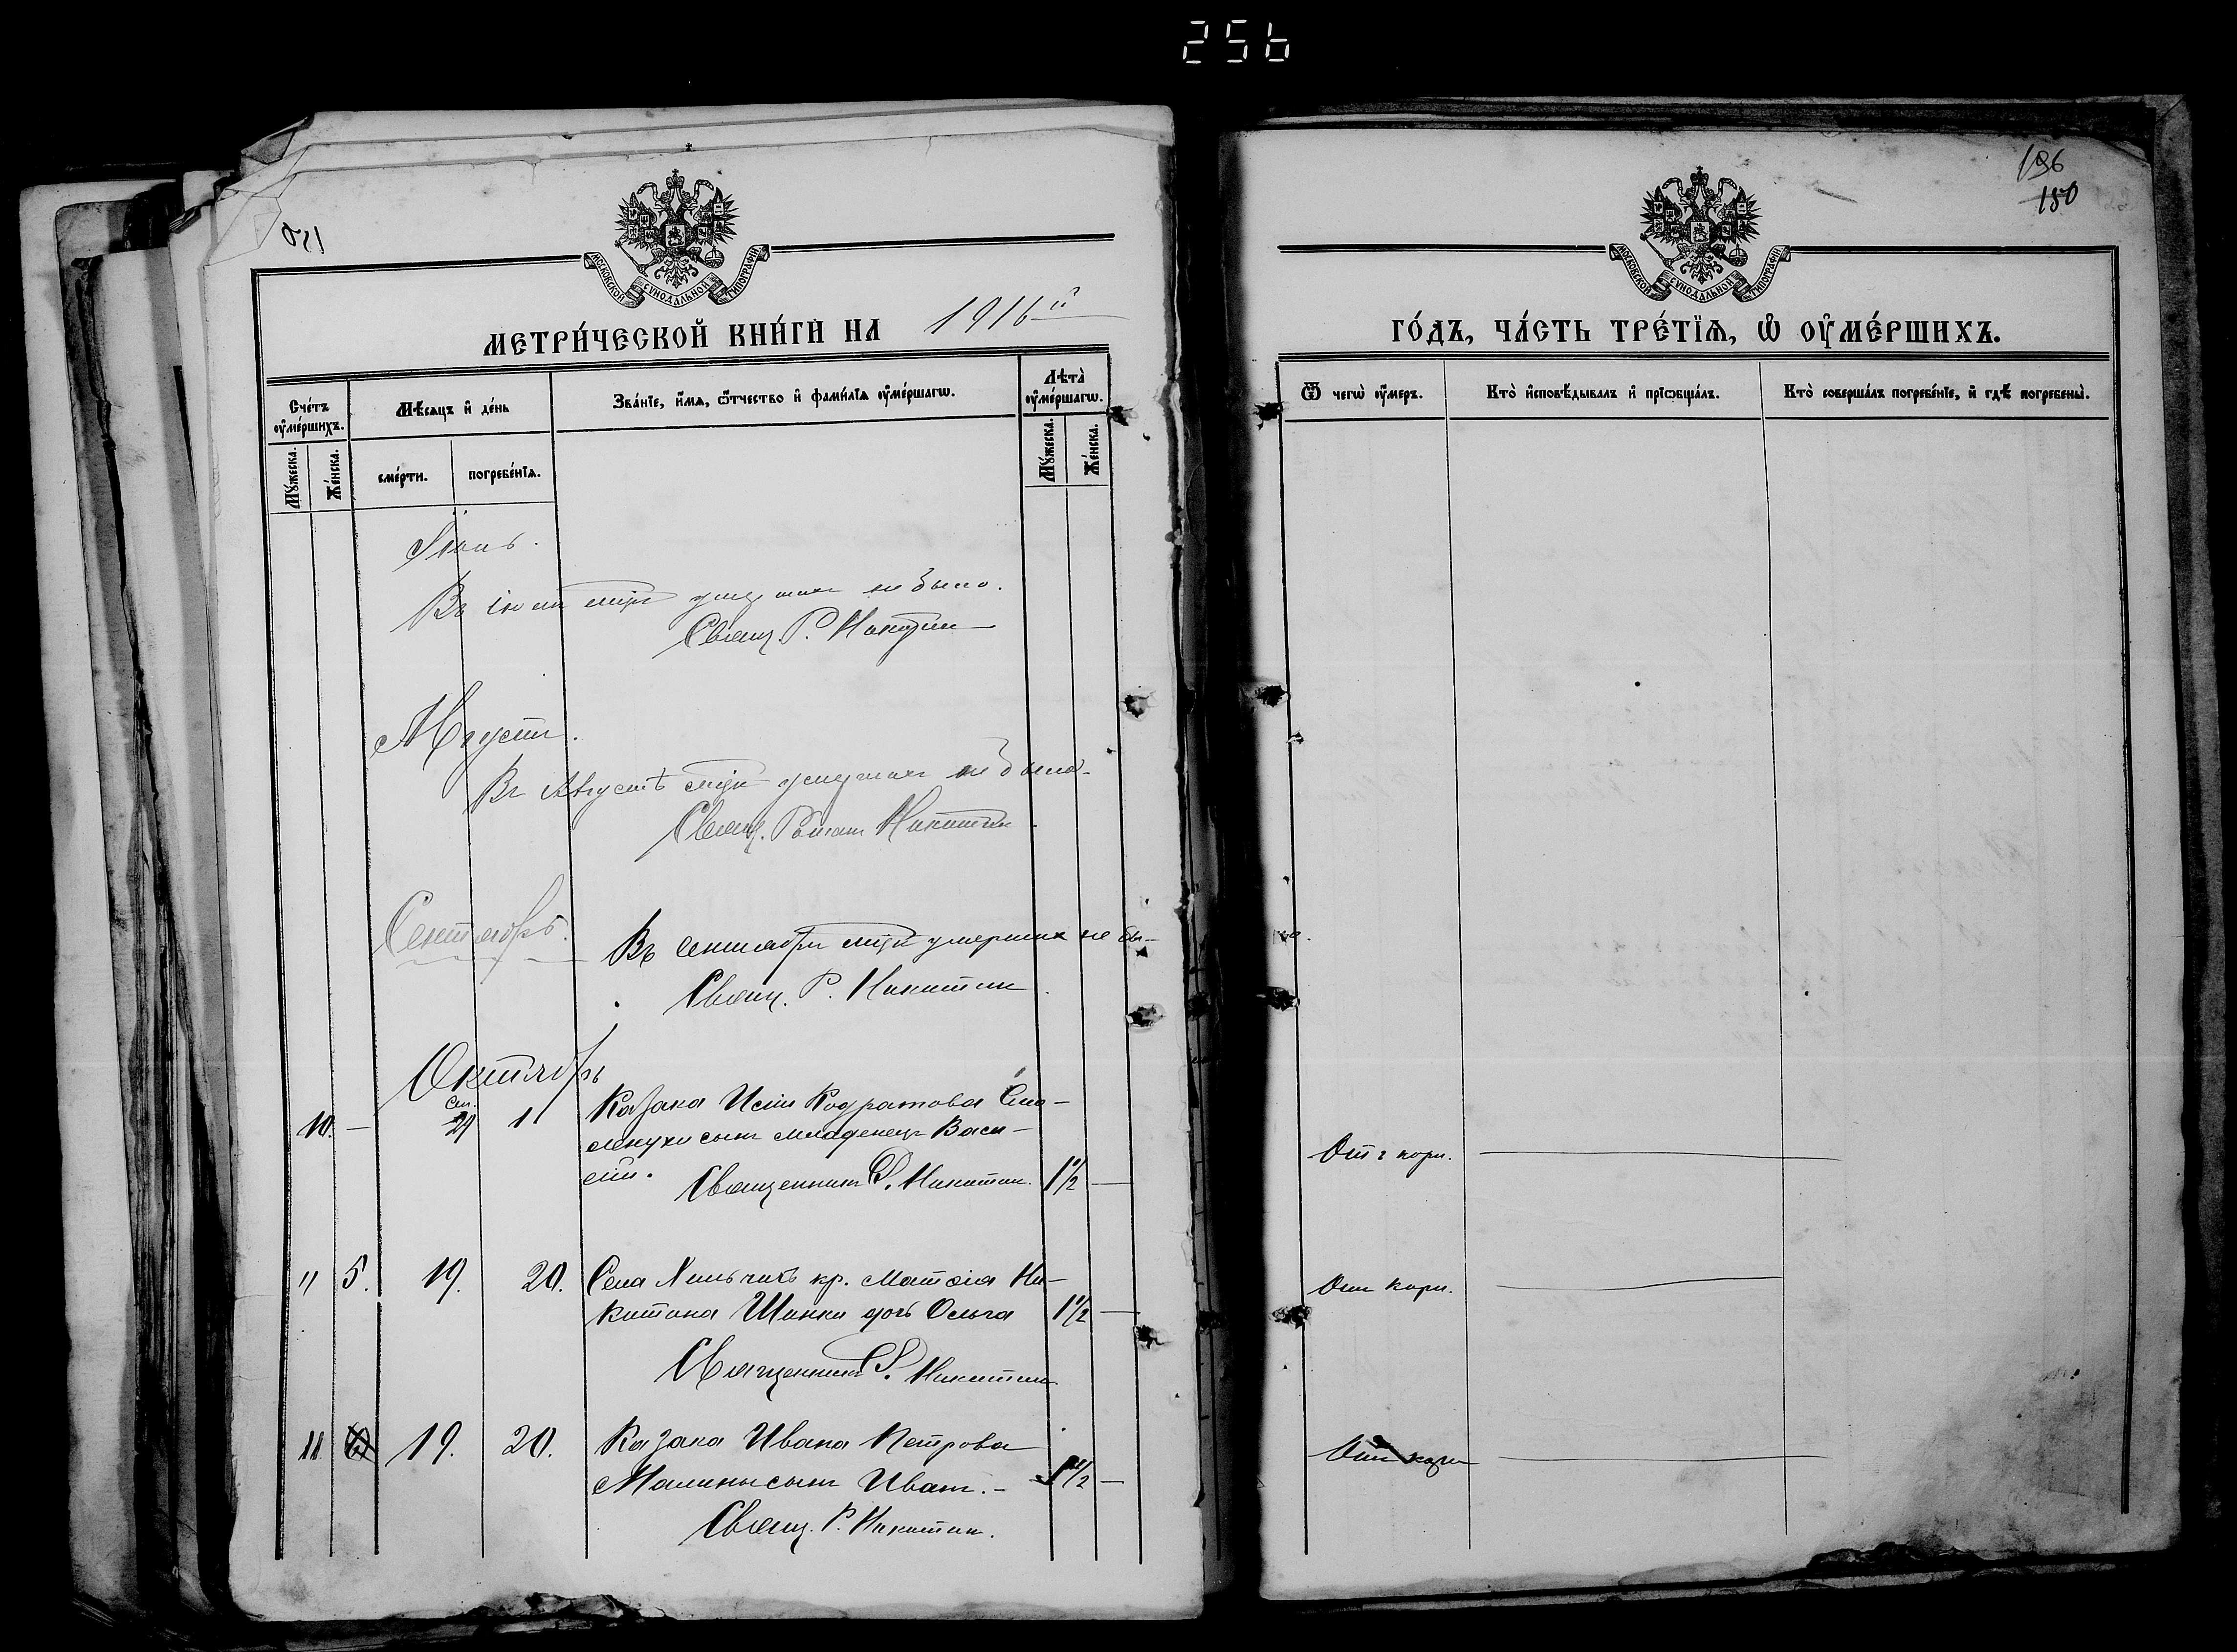 256
МОСКОВСКОЙ СѴНОДАЛЬНОЙ ТИПОГРАФІИ
МЕТРИ́ЧЕСКОЙ КНИ́ГИ НА 1916й
Сче́тъ ᲂу҆ме́ршихъ.
Мѣ́сяцъ и҆ де́нь
Зва́нїе, и҆́мя, ѻ҆́тчество и҆ фами́лїя ᲂу҆ме́ршагѡ.
Лѣта̀ ᲂу҆ме́ршагѡ.
Мꙋ́жеска.
Же́нска.
сме́рти.
погребе́нїя.
Мꙋ́жеска.
Же́нска.
Въ умерших не было.
Свящ. Р. Никитин
Августъ.
Въ Августѣ мцѣ умерших не было.
Свящ. Роман Никитин
Сентябрь.
Въ сентябрѣ мцѣ умерших не бы-
Свящ. Р. Никитин
Октябрь
Сен.
10. — 29 1 Казака Кодратова
сын младенец Васи-
лій. Священник Р. Никитин. 1 1/2 —
11 5. 19. 20. Села кр. Матѳія Ни-
китина Шинки дочь Ольга 1 1/2 —
Священник Р. Никитин
11 19. 20. Казака Ивана Петрова
Малины сын Иван. - 1/2 —
Свящ. Р. Никитин.
196
150
МОСКОВСКОЙ СѴНОДАЛЬНОЙ ТИПОГРАФІИ
ГО́ДЪ, ЧА́СТЬ ТРЕ́ТЇЯ, Ѡ҆ ОУ҆МЕ́РШИХЪ.
Ѿ чегѡ̀ ᲂу҆́меръ.
Кто̀ и҆сповѣ́дывалъ и҆ прїѡбща́лъ.
Кто̀ соверша́лъ погребе́нїе, и҆ гдѣ̀ погребены̀.
ло.
От кори.
От кори.
От кори